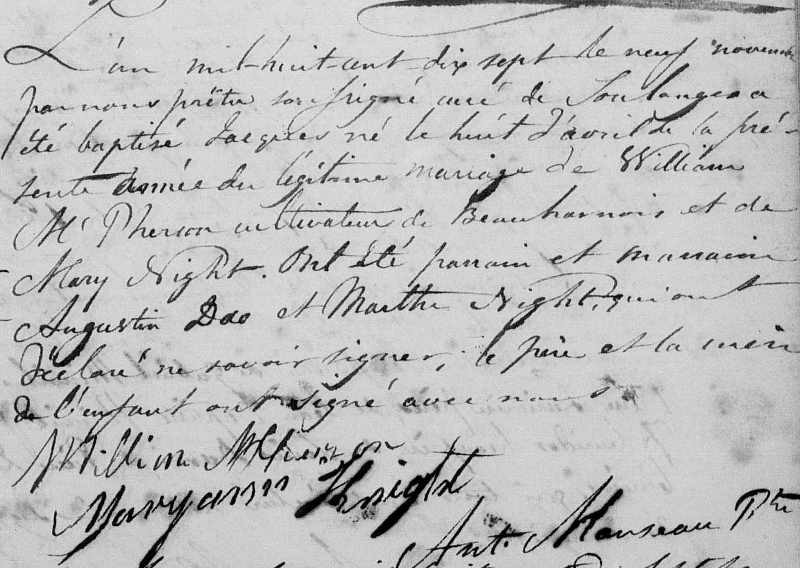 L'an mil-huit-cent-dix sept le neuf novembre
par nous prêtre soussigné curé de Soulanges a
été baptisé Jacques né le huit d'avril de la pré-
sente année du légitime mariage de William
Mc Pherson cultivateur de Beauharnois et de
Mary Night. Ont été parrain et marraine
Augustin Dao et Marthe Night, qui ont
déclaré ne savoir signer, le père et la mère
de l'enfant ont signé avec nous.
William McPherson
Maryann Knight
Ant. Manseau Ptre